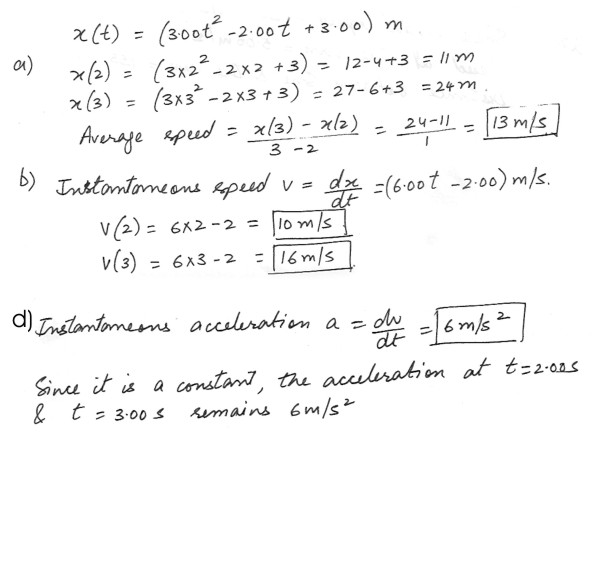 x(t) = (3.00t² - 2.00t + 3.00) m
a) x(2) = (3×2² - 2×2 + 3) = 12-4+3 = 11 m
x(3) = (3×3² - 2×3 + 3) = 27-6+3 = 24 m.
Average speed = x(3) - x(2) / 3 - 2 = 24-11 / 1 = 13 m/s
b) Instantaneous speed v = dx/dt = (6.00t - 2.00) m/s.
v(2) = 6×2 - 2 = 10 m/s
v(3) = 6×3 - 2 = 16 m/s
d) Instantaneous acceleration a = dv/dt = 6 m/s²
Since it is a constant, the acceleration at t = 2.00s
& t = 3.00 s remains 6 m/s²